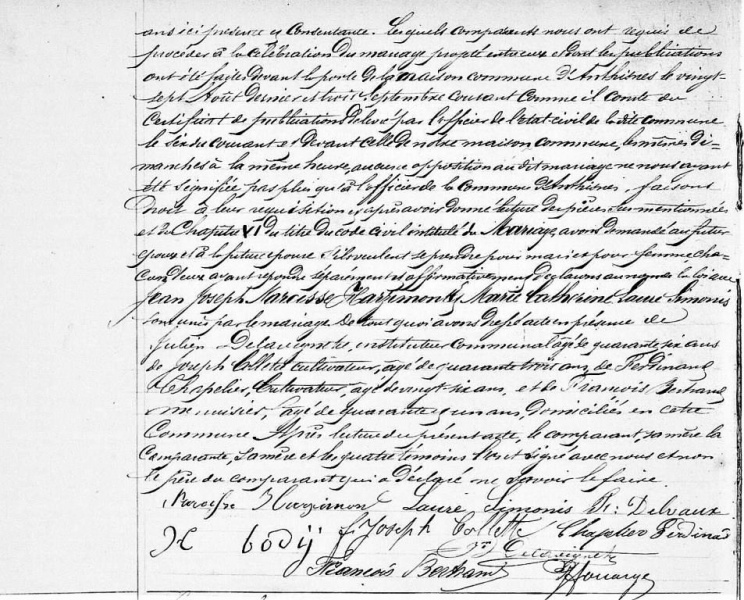 ans ici présente et consentante. Lesquels comparants nous ont requis de
procéder à la célébration du mariage projeté entre eux et dont les publications
ont été faites devant la porte de la maison commune d'Anthisnes le vingt-
sept Août dernier et trois Septembre courant comme il conste du
Certificat de publications délivré par l'officier de l'état civil de la dite commune
le six du courant et devant celle de notre maison commune, les mêmes di=
manches à la même heure, aucune opposition au dit mariage ne nous ayant
été signifiée pas plus qu'à l'officier de la Commune d'Anthisnes, faisons
droit à leur réquisition et après avoir donné lecture des pièces sus mentionnées
et du Chapitre VI du titre du code civil intitulé du Mariage, avons demandé au futur
époux et à la future épouse s'ils veulent se prendre pour mari et pour femme cha=
cun d'eux ayant répondu séparément et affirmativement déclarons au nom de la loi que
Jean Joseph Narcisse Harzimont et Marie Catherine Laure Simonis
sont unis par le mariage. De tout quoi avons dressé acte en présence de
Julien Delavignette, instituteur communal âgé de quarante six ans
de Joseph Collette cultivateur, âgé de quarante trois ans, de Ferdinand
Chapelier, Cultivateur, âgé de vingt six ans, et de François Bertrand
menuisier, âgé de quarante et un ans, domiciliés en cette
Commune. Après lecture du présent acte, le comparant, sa mère la
Comparante, sa mère et les quatre témoins l'ont signé avec nous et non
le père du comparant qui a déclaré ne savoir le faire.
Narcisse Harzimont Laure Simonis Delvaux
H bodÿ J. Joseph Collette Chapelier Ferdinand
Delavignette
François Bertrand